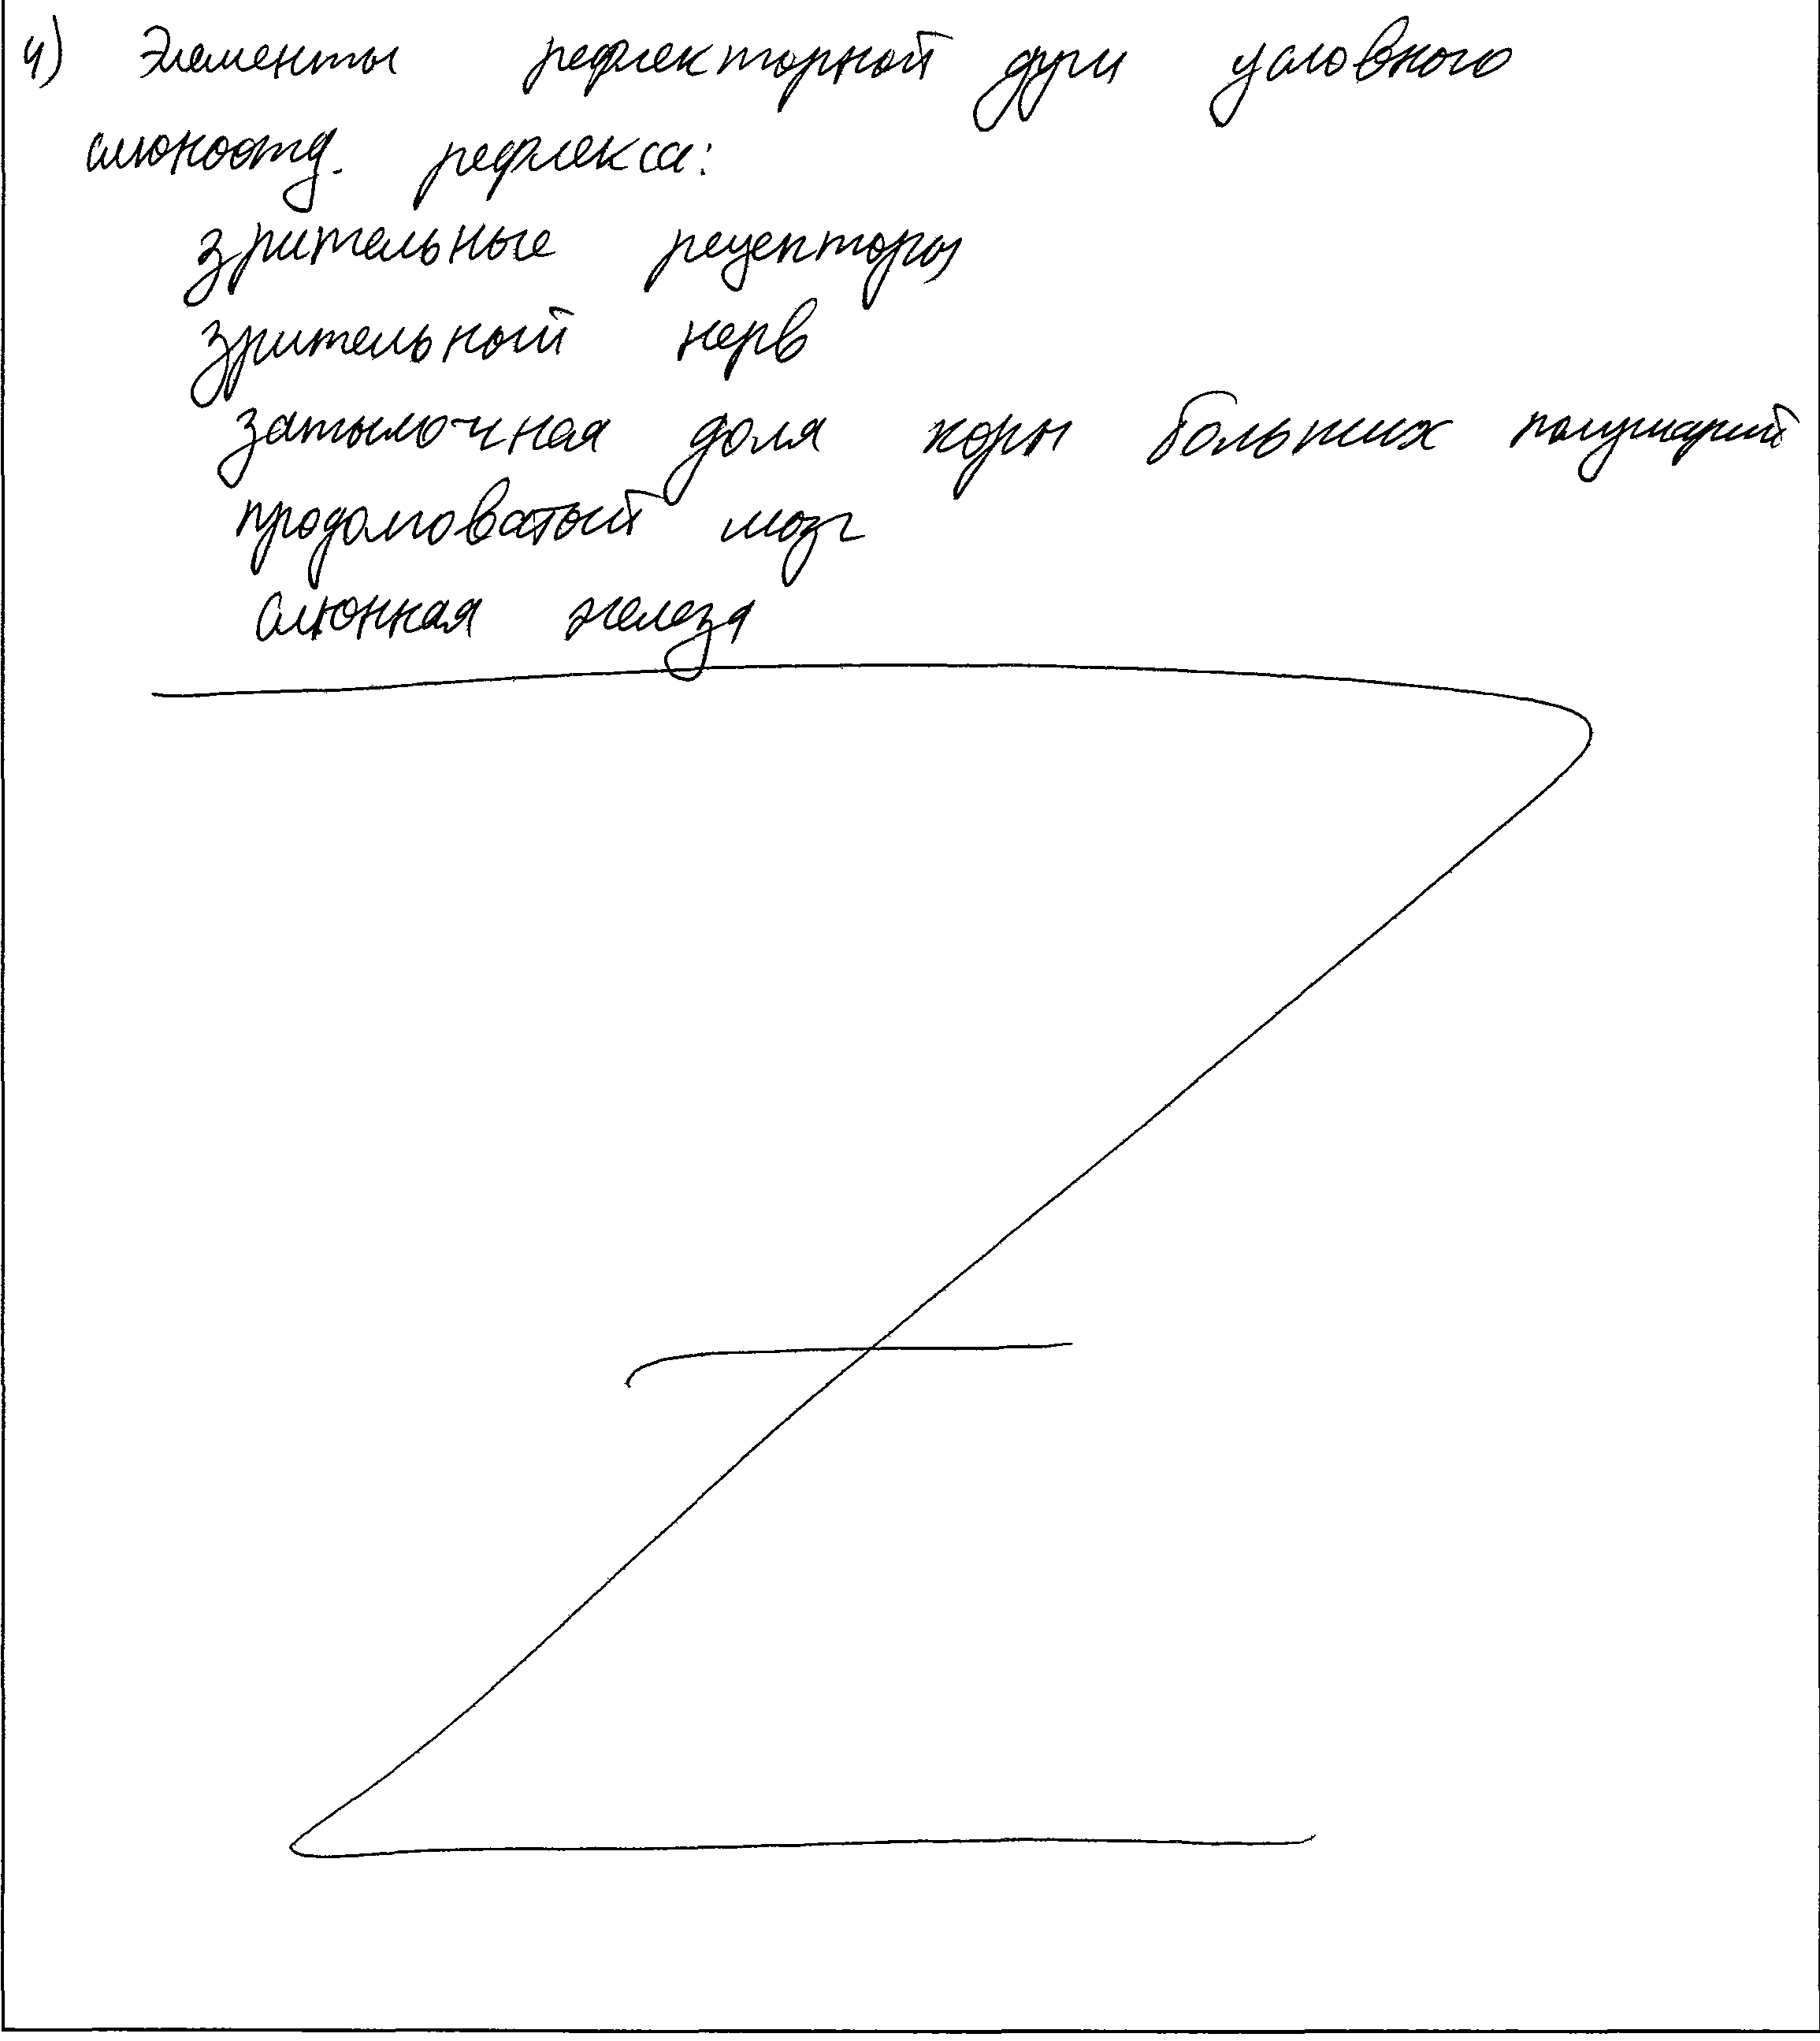 4) Элементы рефлекторной дуги условного
слюноотд. рефлекса:
зрительные рецепторы
зрительный нерв
затылочная доля коры больших полушарий
продолговатый мозг
слюнная железа